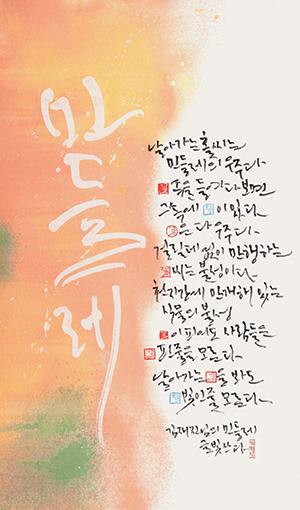 민들레
날아가는 홀씨는
민들레의 우주다
들여다보면
그 속에 이 있다
은 다 우주다
걸림없이 만행하는
씨는 불성이다
천지간에 만개해 있는
사물의 불성
이 피어도 사람들은
핀 줄을 모른다
날아가는 을 봐도
빛인 줄 모른다
김재진님의 민들레
쓰다